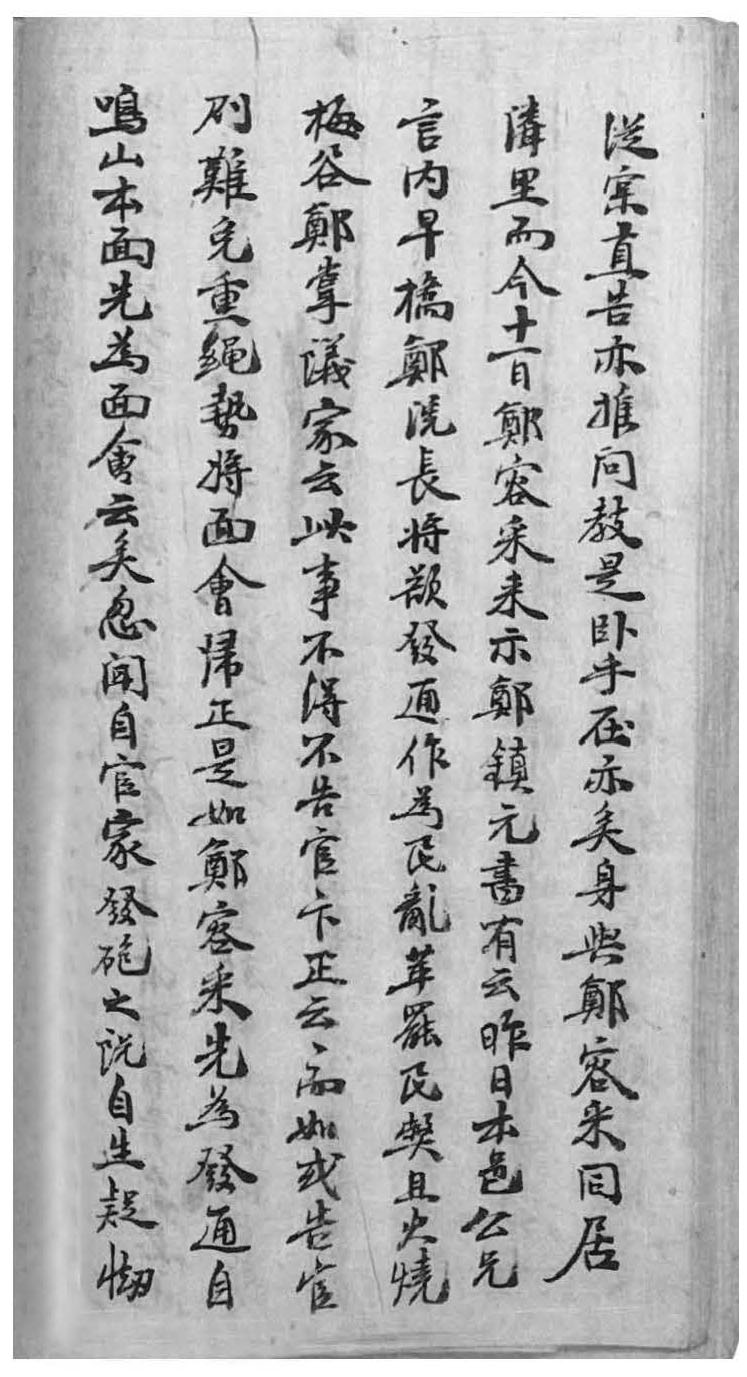 從實直告亦推問教是卧乎在亦矣身與鄭容采同居
隣里而今十一日鄭容采來示鄭鎮元書有云昨日本邑公兄
言內早橋鄭洗長將欲發通作為民亂革罷民契且火燒
梅谷鄭掌議家云此事不得不告官卞正云云而如或告官
則難免重繩勢將面會歸正是如鄭容采先為發通自
鳴山本面先為面會云矣忽聞自官家發砲之說自生疑㤼